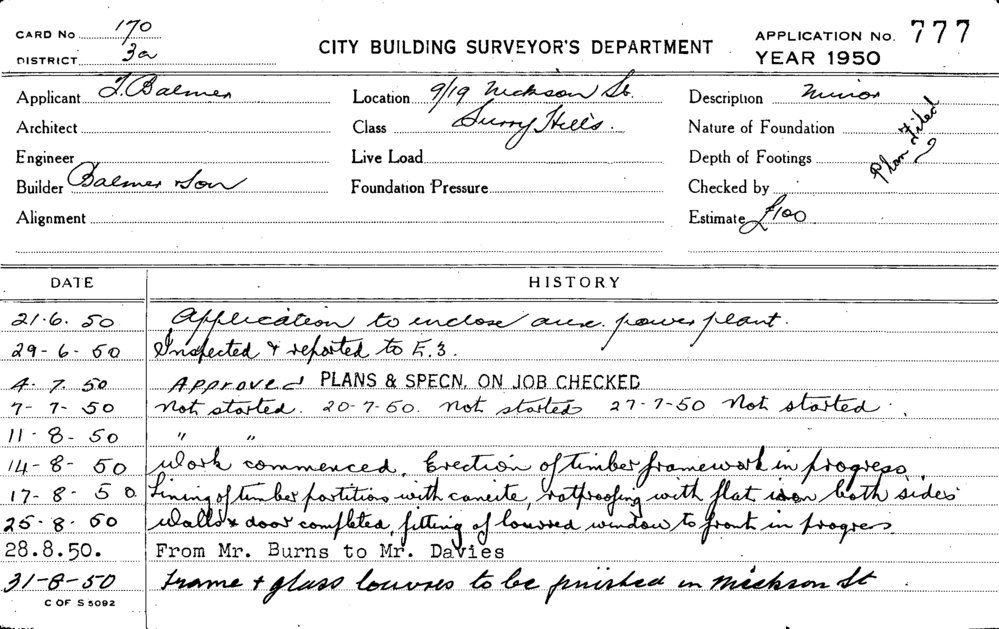 CARD No 170
DISTRICT 3a
CITY BUILDING SURVEYOR'S DEPARTMENT
APPLICATION No. 777
YEAR 1950
Applicant J. Balmer Location 9/19 Nickson St. Description Minor
Architect Class Surry Hills. Nature of Foundation
Engineer Live Load Depth of Footings
Plan Filed
Builder Balmer & Son Foundation Pressure Checked by
Alignment Estimate £100
DATE HISTORY
21.6.50 Application to inclose aux. power plant.
29-6-50 Inspected & reported to E.3.
4.7.50 Approved PLANS & SPECN. ON JOB CHECKED
7-7-50 Not started. 20-7-50. Not started 27-7-50 Not started.
11-8-50 " "
14-8-50 Work commenced. Erection of timber framework in progress
17-8-50 Lining of timber partition with caneite, ratproofing with flat iron both sides
25-8-50 Walls & door completed, fitting of louvred window to front in progress
28.8.50. From Mr. Burns to Mr. Davies
31-8-50 Frame & glass louvres to be finished in Nickson St.
C OF S 5092